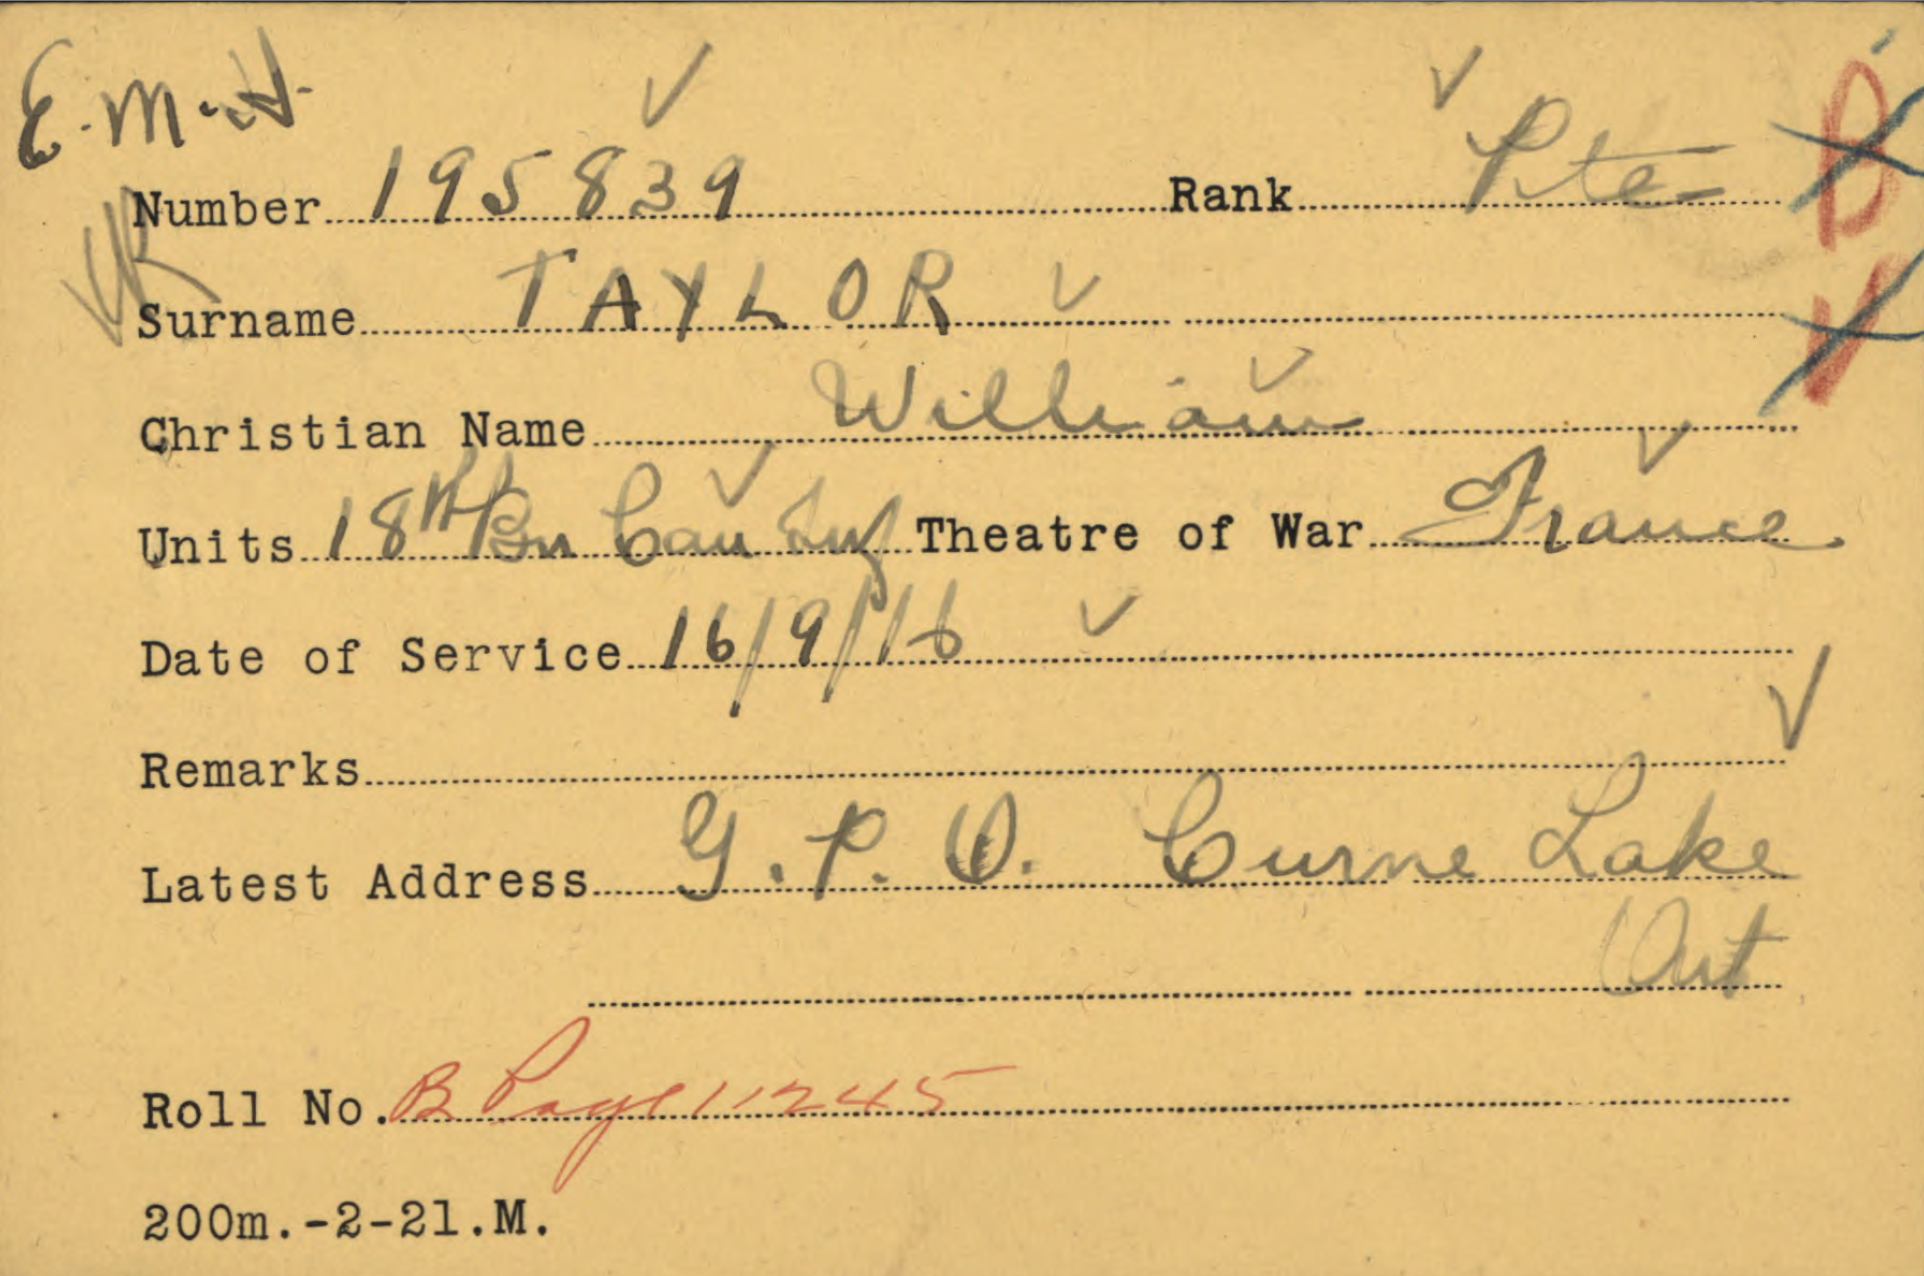 E.M.H.
Number 195839 Rank Pte B
Surname TAYLOR V
Christian Name William
Units 18th Bn Can Inf Theatre of War France
Date of Service 16/9/16
Remarks
Latest Address G.P.O. Curne Lake
Ont
Roll No. B Page 11245
200m.-2-21.M.